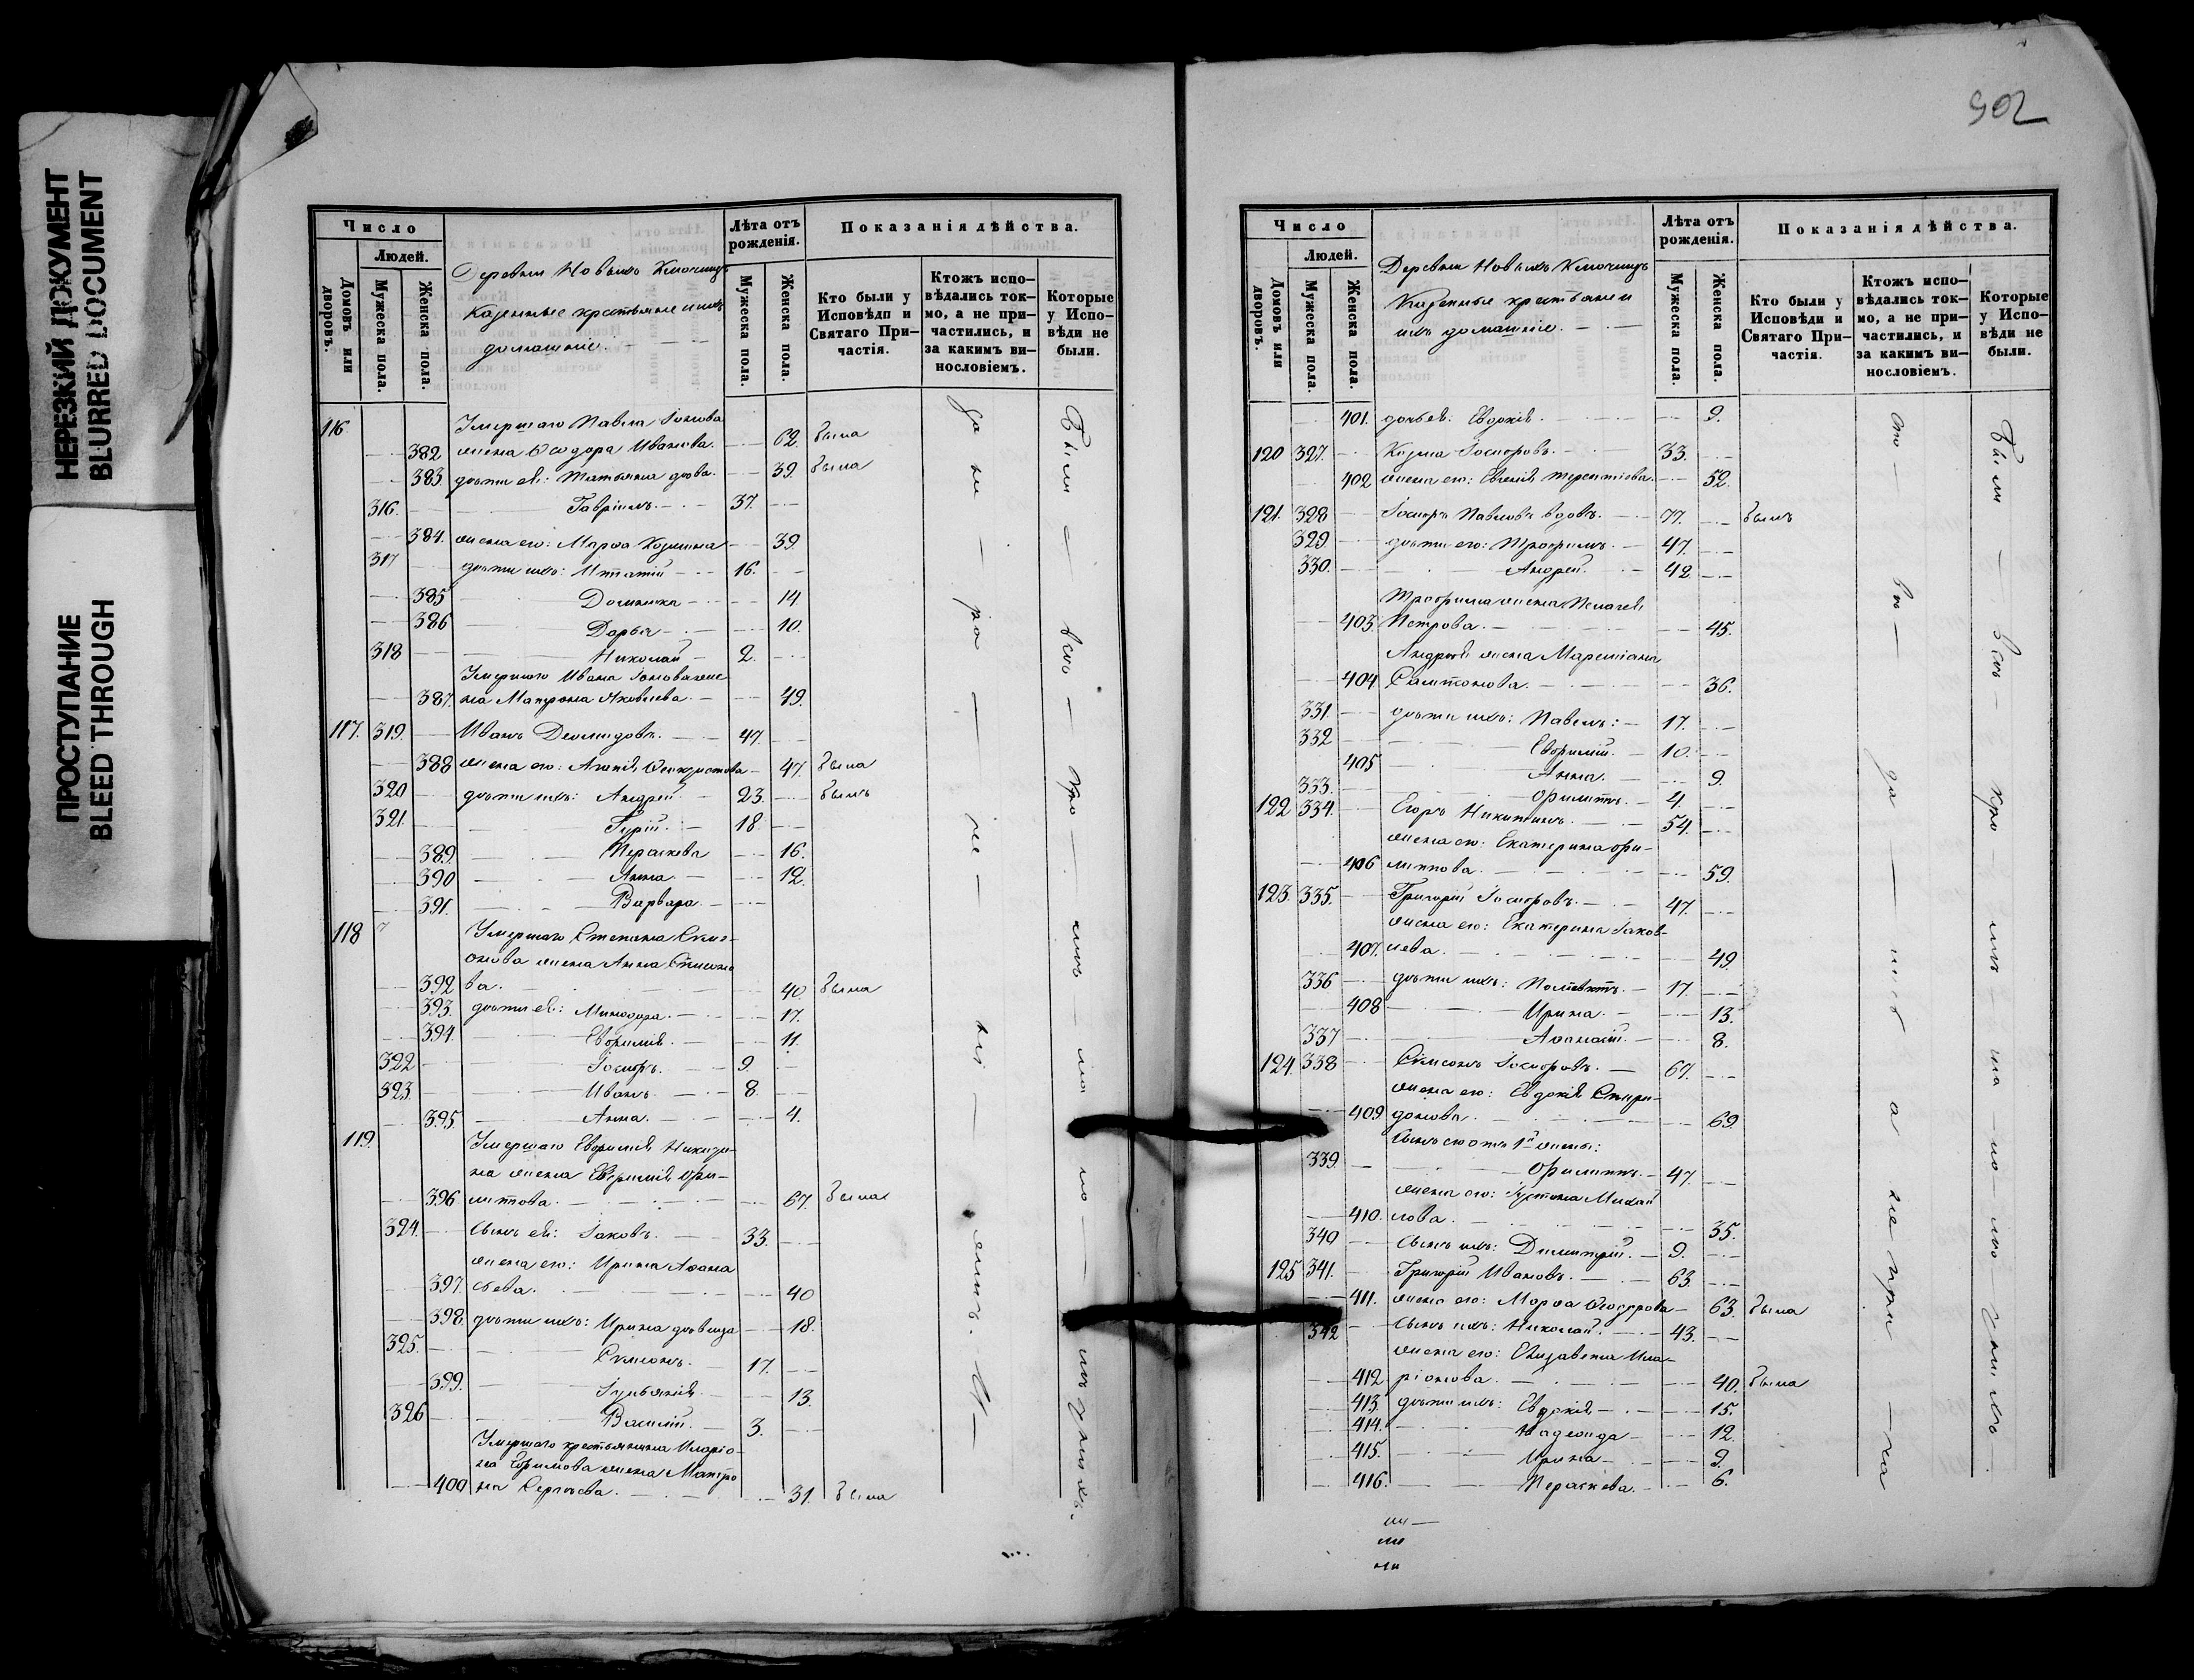 НЕРЕЗКИЙ ДОКУМЕНТ
BLURRED DOCUMENT
ПРОСТУПАНИЕ
BLEED THROUGH
Число
Людей.
Домовъ или дворовъ.
Мужеска пола.
Женска пола.
Деревни Новыхъ Ключищъ
Казенные крестьяне и ихъ
домашніе.
Лѣта отъ рожденія.
Мужеска пола.
Женска пола.
Показанія дѣйства.
Кто были у Исповѣди и Святаго Причастія.
Ктожъ исповѣдались токмо, а не причастились, и за какимъ винословіемъ.
Которые у Исповѣди не были.
116. Умершаго Павла Іонова
382 жена Ѳеодора Иванова. 62. была
383. дѣти ея: Татьяна дѣва. 39. была
316. Гавріилъ. 37.
384. жена его: Марѳа Козмина 39.
317 дѣти ихъ: 16.
385 Домника 14.
386 Дарья 10.
318 Николай 2.
Умершаго Ивана Іонова же-
387. на Матрона Яковлева. 49.
117. 319. Иванъ Деомидовъ. 47.
388 жена его: Агапія Ѳеоктистова 47. была
320 дѣти ихъ: Андрей 23. былъ
321. Гурій. 18.
389. Параскева 16.
390 Анна. 12.
391. Варвара.
118 Умершаго Степана Симе-
онова жена Анна Симоно
392 ва. 40. была
393. дѣти ея: Минодора. 17.
394. Евѳимія. 11.
322 Іосифъ. 9.
323. Иванъ. 8.
395. Анна. 4.
119. Умершаго Евфимія Никити-
на жена Евфимія Фи-
396 липпова. 67. была
324. Сынъ ея: Іаковъ. 33.
жена его: Ирина Аѳана
397. сьева. 40
398. дѣти ихъ: Ирина дѣвица 18.
325. Симеонъ. 17.
399. Іуліанія. 13.
326 Василій. 3.
Умершаго крестьянина Иларіо-
на Ефимова жена Матро
400 на Сергѣева. 31. была
902
Число
Людей.
Домовъ или дворовъ.
Мужеска пола.
Женска пола.
Деревни Новыхъ Ключищъ
Казенные крестьяне и
ихъ домашніе.
Лѣта отъ рожденія.
Мужеска пола.
Женска пола.
Показанія дѣйства.
Кто были у Исповѣди и Святаго Причастія.
Ктожъ исповѣдались токмо, а не причастились, и за какимъ винословіемъ.
Которые у Исповѣди не были.
401. дочь ея: Евдокія. 9.
120 327. Козма Іосифовъ. 33.
402 жена его: Евгенія Терентіева. 52.
121. 328 Іосифъ Павловъ вдовъ. 77. былъ
329. дѣти его: Трофимъ. 47.
330. Андрей. 42
Трофима жена Пелагея
403 Петрова. 45.
Андрея жена Мареміана
404 Самсонова. 36.
331. дѣти ихъ: Павелъ: 17.
332 Евфимій. 10.
405 Анна. 9.
333. Филиппъ. 4.
122 334. Егоръ Никитинъ. 54.
жена его: Екатерина Фи-
406 липпова. 59.
123. 335. Григорій Іосифовъ. 47.
жена его: Екатерина Іаков-
407. лева. 49.
336 дѣти ихъ: 17.
408 Ирина. 13.
337 Аѳанасій. 8.
124. 338 Симеонъ Іосифовъ. 67.
жена его: Евдокія Спири-
409 донова. 69.
Сынъ его отъ 1й жены:
339. Филиппъ. 47.
жена его: Іустина Михай
410. лова. 35.
340 Сынъ ихъ: Димитрій. 9.
125 341. Григорій Ивановъ. 63.
411. жена его: Марѳа Ѳеодорова 63. была
342 Сынъ ихъ: Николай. 43.
жена его: Елизавета Ила-
412. ріонова. 40. была
413. дѣти ихъ: Евдокія 15.
414. Надежда 12.
415. Ирина 9.
416. Параскева. 6.